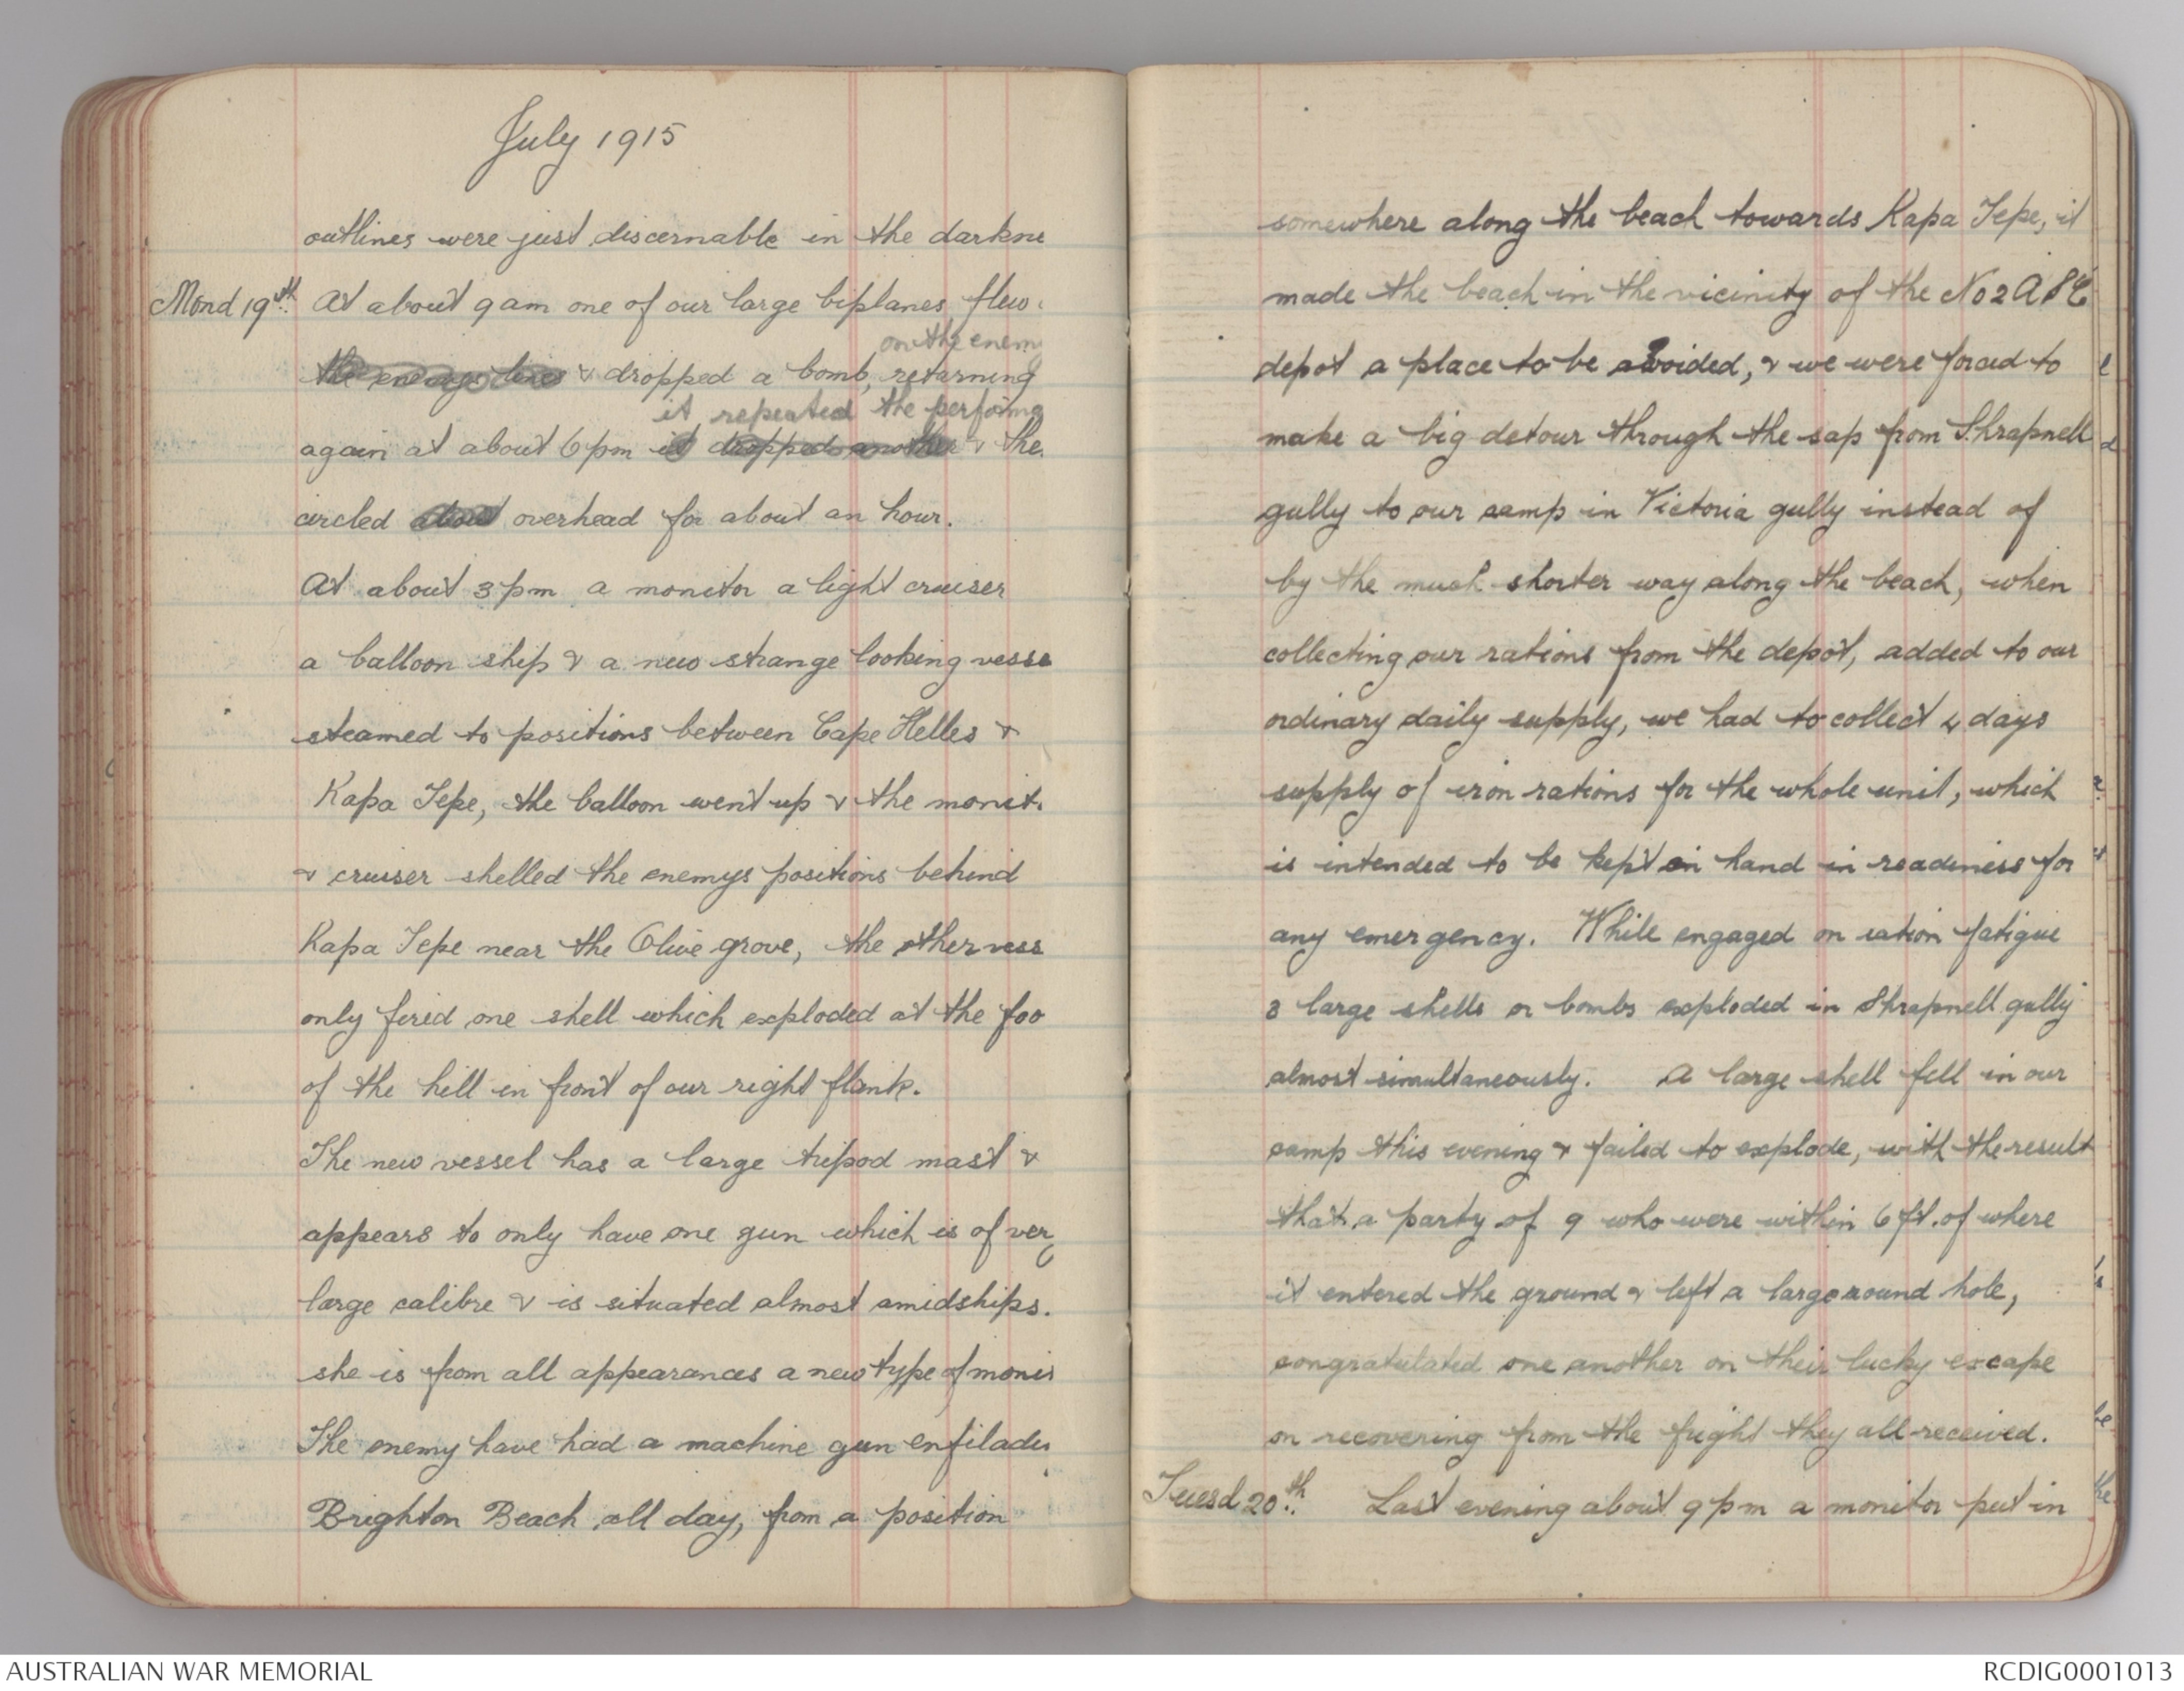 July 1915
outlines were just discernable in the darkne
Mond 19th. At about 9 am one of our large biplanes flew
on the enem
the enemys lines & dropped a bomb, returning
it repeated the performa
again at about 6 pm it dropped another & the
circled about overhead for about an hour.
At about 3 pm a monitor a light cruiser
a balloon ship & a new strange looking vesse
steamed to positions between Cape Helles &
Kapa Tepe, the balloon went up & the monit
& cruiser shelled the enemys positions behind
Kapa Tepe near the Olive grove, the other vess
only fired one shell which exploded at the foo
of the hill in front of our right flank.
The new vessel has a large tripod mast &
appears to only have one gun which is of very
large calibre & is situated almost amidships.
she is from all appearances a new type of monit
The enemy have had a machine gun enfiladin
Brighton Beach all day, from a position
somewhere along the beach towards Kapa Tepe, it
made the beach in the vicinity of the No 2 ASC
depot a place to be avoided, & we were forced to
make a big detour through the sap from Shrapnell
gully to our camp in Victoria gully instead of
by the much shorter way along the beach, when
collecting our rations from the depot, added to our
ordinary daily supply, we had to collect 4 days
supply of iron rations for the whole unit, which
is intended to be kept on hand in readiness for
any emergency. While engaged on ration fatigue
3 large shells or bombs exploded in Shrapnell gully
almost simultaneously. A large shell fell in our
camp this evening & failed to explode, with the result
that a party of 9 who were within 6 ft. of where
it entered the ground & left a large round hole,
congratulated one another on their lucky escape
on recovering from the fright they all received.
Tuesd 20th. Last evening about 9 pm a monitor put in
AUSTRALIAN WAR MEMORIAL
RCDIG0001013